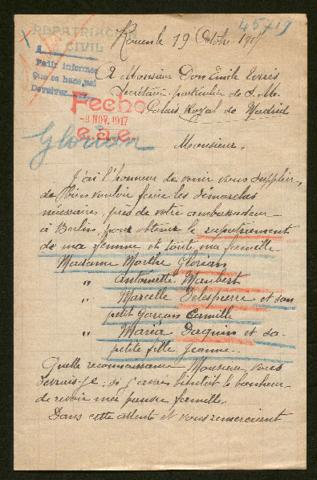 REPATRIACION
CIVIL
45719
Rouen le 19 Octobre 1917
A
Pedir informes
Devolver
Fecho
-8 NOV. 1917
Glorian
A Monsieur Don Emile
Secrétaire particulier de S. M.
Palais Royal de Madrid
Monsieur,
J'ai l'honneur de venir vous supplier,
de bien vouloir faire les démarches
nécessaires, près de votre ambassadeur
à Berlin, pour obtenir le rapatriement
de ma femme et toute ma famille
Madame Marthe Glorian
" Antoinette Maubert
" Marcelle Delespierre et son
petit garçon Camille
" Maria Daquin et sa
petite fille Jeanne.
Quelle reconnaissance Monsieur vous
devrais-je, si j'avais bientôt le bonheur
de revoir ma pauvre famille.
Dans cette attente et vous remerciant